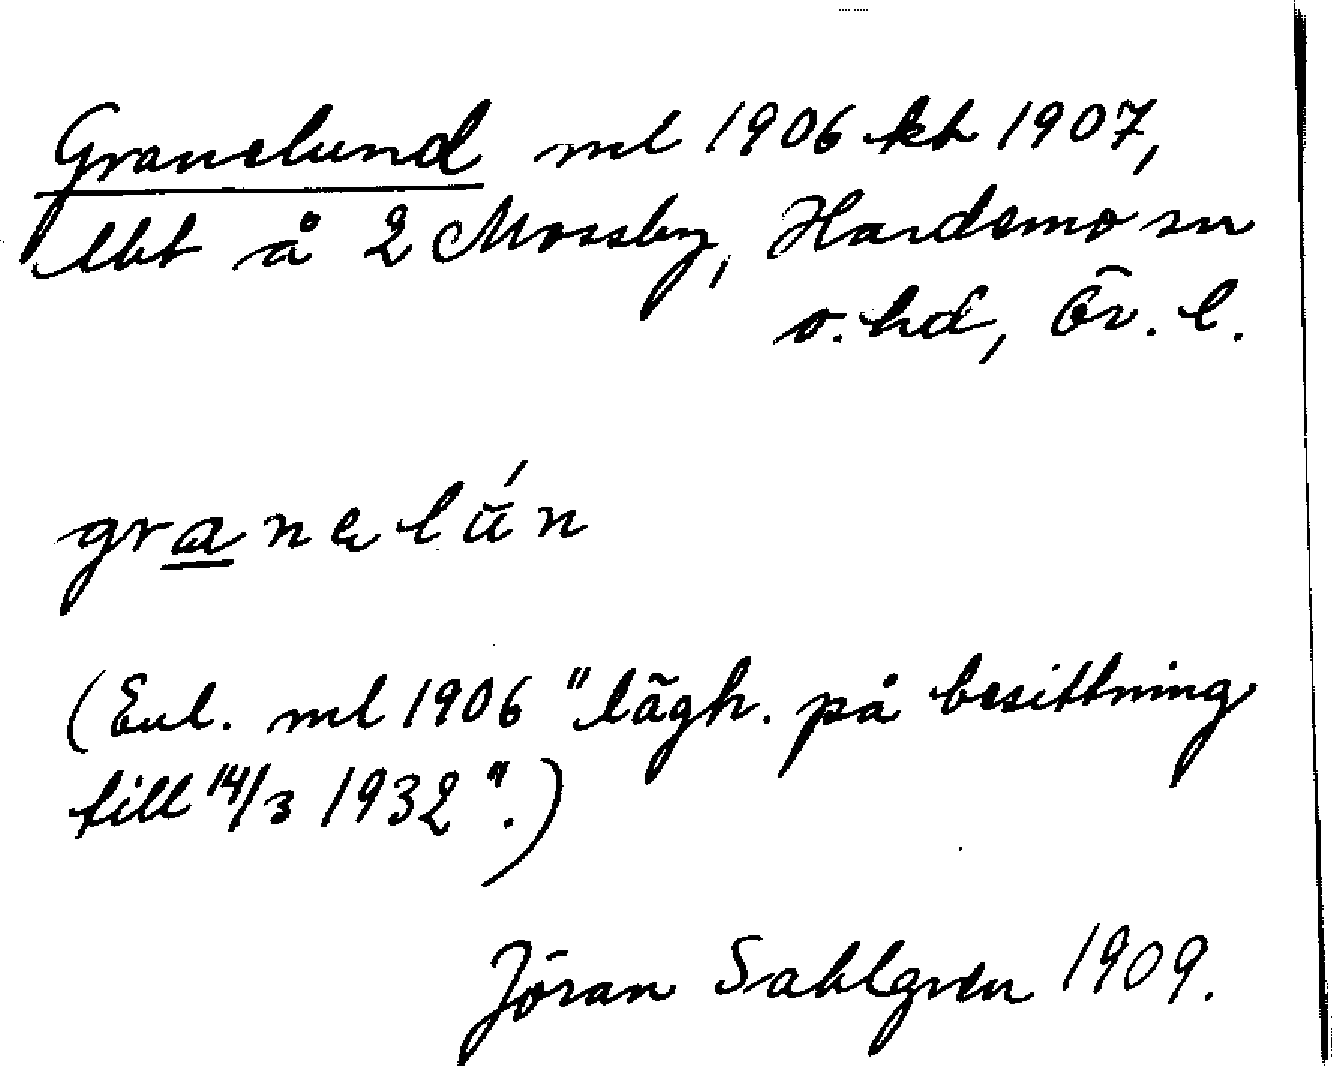 Granelund ml 1906 kb 1907,
lbt å 2 Mossby, Hardemo sn
o. hd, Ör. l.
granelun
(Enl. ml 1906 "lägh. på besittning
till 14/3 1932".)
Jöran Sahlgren 1909.